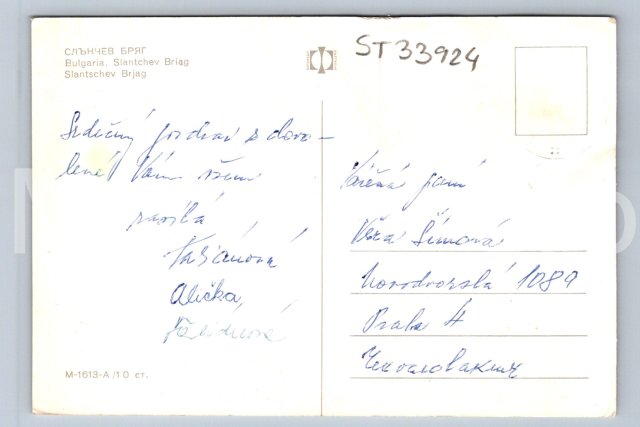 СЛЪНЧЕВ БРЯГ
Bulgaria, Slantchev Briag
Slantschev Brjag
ST33924
Srdečný pozdrav z dovo-
lené Vám všem
posílá
Alička,
Vážená paní
Věra Šímová
Novodvorská 1089
Praha 4
Чехословакия
М-1613-А/10 ст.